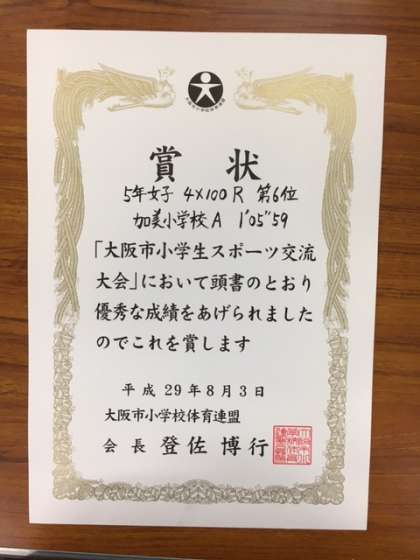 賞状
5年女子 4×100R 第6位
加美小学校A 1'05"59
「大阪市小学生スポーツ交流
大会」において頭書のとおり
優秀な成績をあげられました
のでこれを賞します
平成29年8月3日
大阪市小学校体育連盟
会長 登佐博行